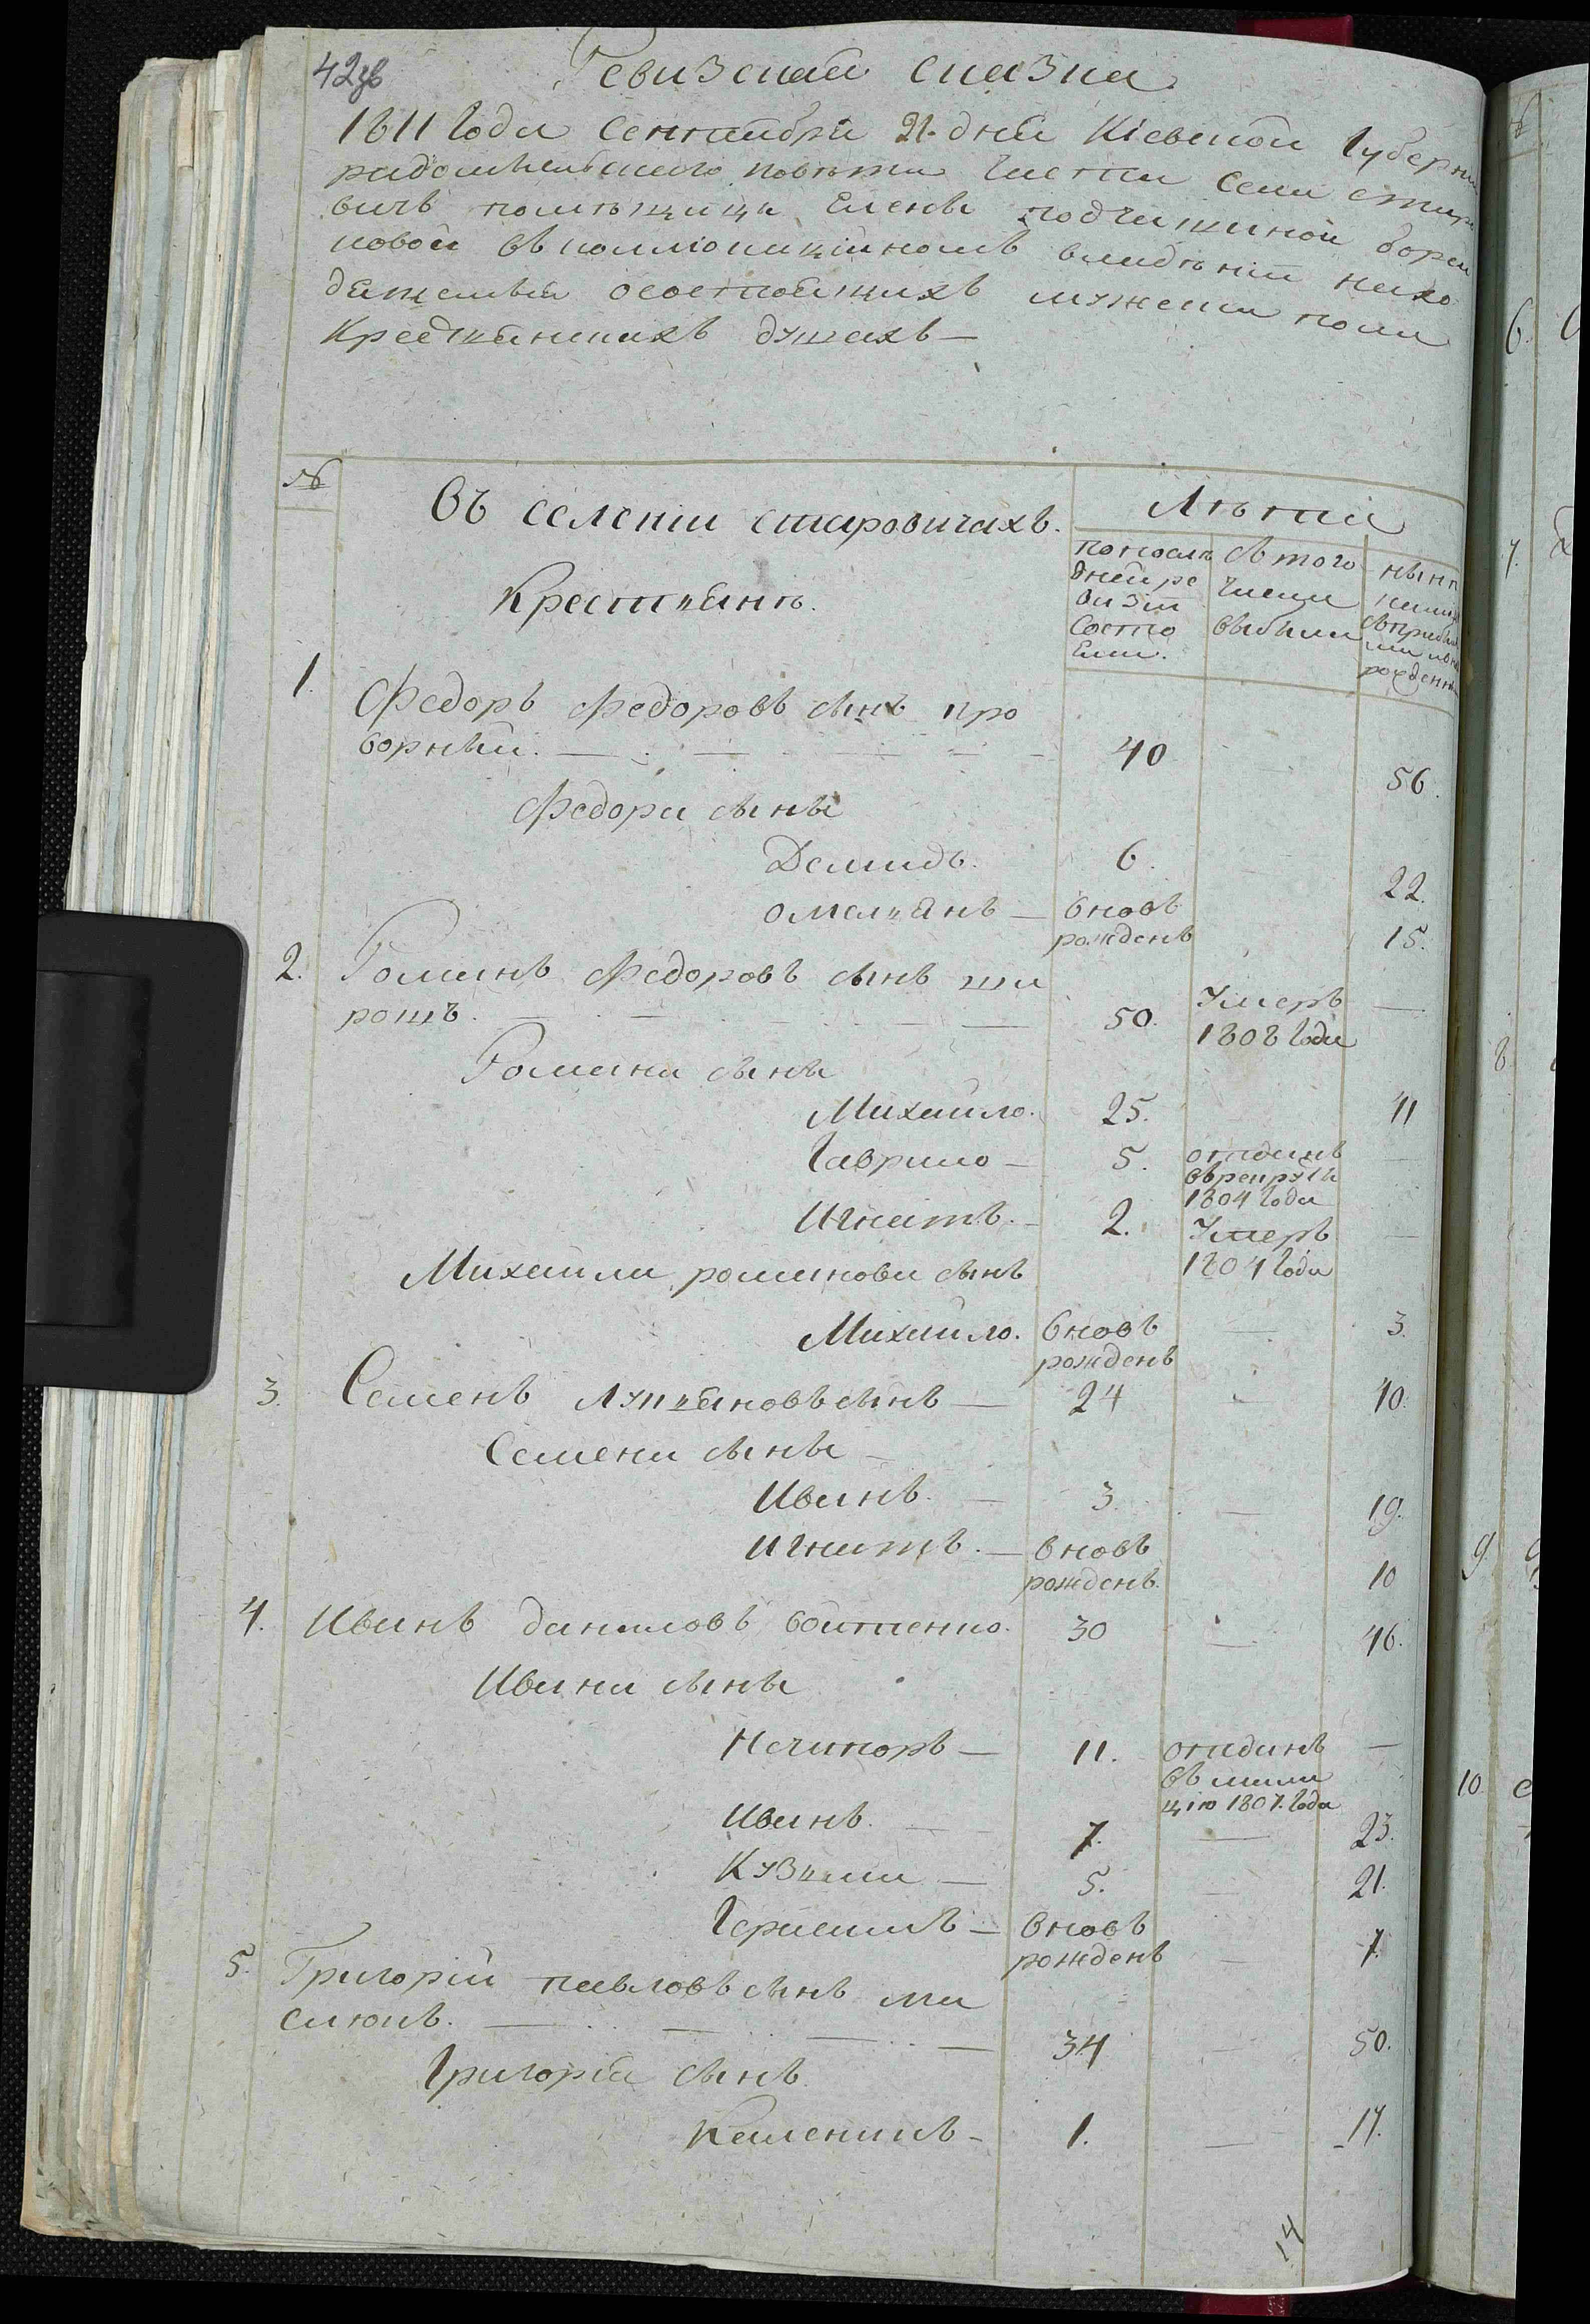 42зв
Ревизская сказка
1811 Года Сентября 21. дня Кіевской Губерни
радомысльского повѣта Части Села стари
вичъ помѣщици Елены подчашиной
новой въ коммюникційномъ владѣніи нахо
дящемься осостоящихъ мужеска пола
Крестъянскихъ душахъ —
№
Въ селеніи старовичахъ.
Лѣта
Крестъянъ.
попослѣ
дней ре
визіи
Состо
Яли.
съ того
числа
выбыли
нынѣ
рожденн
1.
Федоръ Федоровъ сынъ про
ворный. — 40 56.
Федора сыны
Демидъ. 6. 22.
Омелъянъ — вновь
рожденъ 15.
2. Романъ Федоровъ сынъ ша
рошъ. — 50. Умеръ —
1808 Года
Романа сыны
Михайло. 25. 41
Гаврило — 5. отданъ —
врекруты
1804 Года
Игнатъ. — 2. Умеръ —
1804 Года
Михайла романова сынъ
Михайло. вновь — 3.
рожденъ
3. Семенъ Лукъяновъ сынъ — 24 — 40.
Семена сыны —
Иванъ. — 3 — 19.
Игнатъ. — вновь
рожденъ. 10
4. Иванъ даниловъ войтенко. 30 — 46.
Ивана сыны
Ничипоръ — 11. отданъ —
въ мили
цію 1807. Года
Иванъ. — 7. — 23.
Кузъма — 5. — 21.
Герасимъ — вновь
рожденъ — 7.
5. Григорій павловъ сынъ ма
сюкъ. — 34 — 50.
Григорія сынъ
Калениkъ — 1. — 17.
14